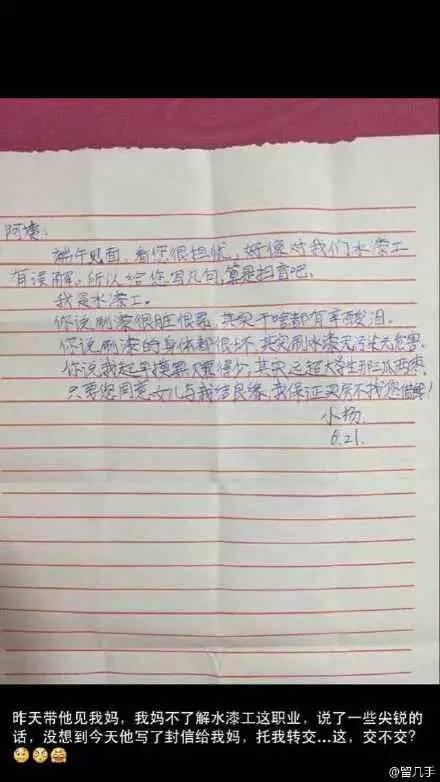 阿姨：
端午见面，看您很担忧，好像对我们水漆工
有误解。所以给您写几句，算是扫盲吧。
我是水漆工。
你说刷漆很脏很累，其实干啥都有辛酸泪。
你说刷漆的身体都很坏，其实刷水漆无污染无危害。
你说我起早摸黑不赚得少，其实远超大学生那三瓜两枣。
只要您同意女儿与我结良缘，我保证买房不找您借钱！
小杨
6.21.
昨天带他见我妈，我妈不了解水漆工这职业，说了一些尖锐的
话，没想到今天他写了封信给我妈，托我转交...这，交不交？
@留几手